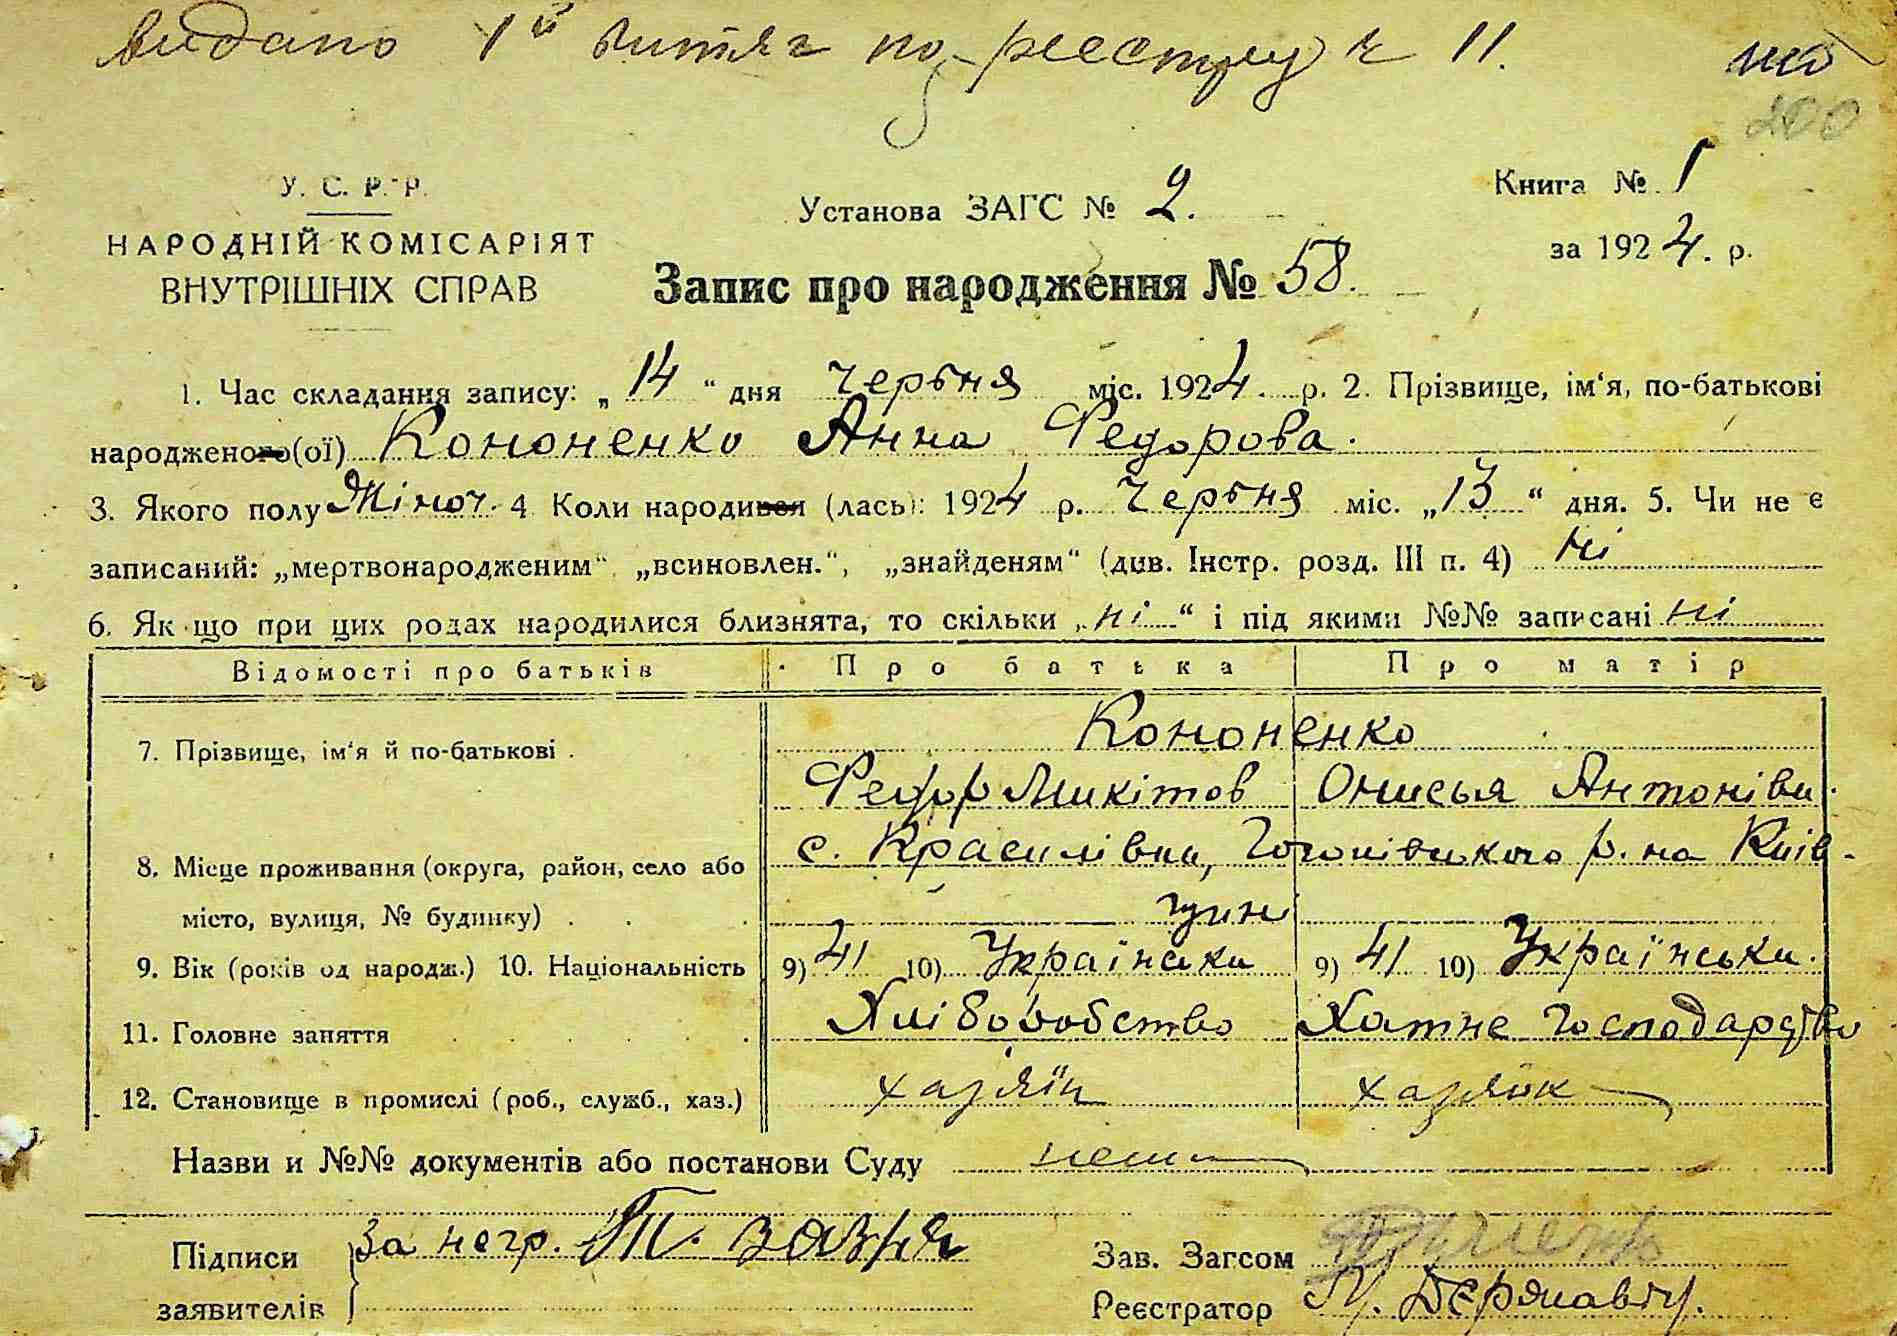 видано 1й витяг по реєстру к 11.
200
У. С. Р. Р.
НАРОДНІЙ КОМІСАРІЯТ
ВНУТРІШНІХ СПРАВ
Установа ЗАГС № 2.
Книга № 1
за 1924. р.
Запис про народження № 58.
1. Час складання запису: „14“ дня червня міс. 1924. р. 2. Прізвище, ім‘я, по-батькові
народженого(ої) Кононенко Анна Федорова.
3. Якого полу Жіноч. 4 Коли народився (лась): 1924 р. Червня міс. „13“ дня. 5. Чи не є
записаний: „мертвонародженим“, „всиновлен.“, „знайденям“ (див. Інстр. розд. III п. 4) ні
6. Як що при цих родах народилися близнята, то скільки „ні“ і під якими №№ записані ні
Відомості про батьків Про батька Про матір
7. Прізвище, ім‘я й по-батькові . Кононенко
Федор Микітов Онисья Антонівн.
8. Місце проживання (округа, район, село або с. Красилівки, Гоголівського р. на Київ-
місто, вулиця, № будинку) . . . щині
9. Вік (років од народж.) 10. Національність 9) 41 10) Українська 9) 41 10) Українська.
11. Головне заняття Хліборобство Хатне господарство
12. Становище в промислі (роб., служб., хаз.) хазяїн хазяйк
Назви и №№ документів або постанови Суду нема
Підписи За негр. Т.
заявителів
Зав. Загсом
Реєстратор